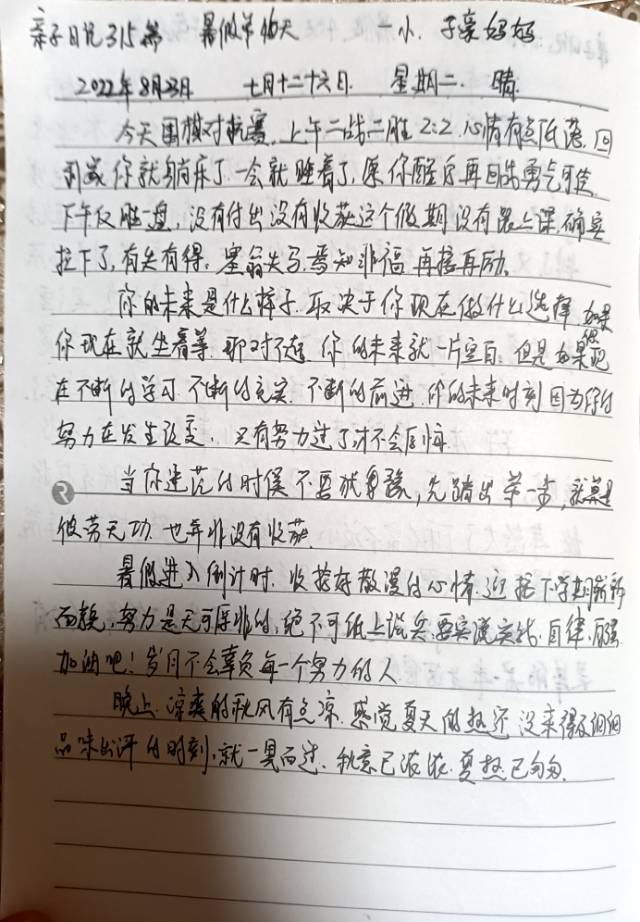 亲子日记315篇 暑假第46天 一小 子豪妈妈
2022年8月23日 七月二十六日 星期二 晴
今天围棋对抗赛,上午二战二胜 2:2,心情有点低落,回
到家你就躺床了一会就睡着了,愿你醒后再回出勇气可佳
下午仅胜一盘,没有付出没有收获这个假期没有跟上课,确实
拉下了,有失有得,塞翁失马,焉知非福,再接再励。
你的未来是什么样子,取决于你现在做什么选择,如果
你现在就坐着等,那对不起,你的未来就一片空白,但是如果你现
在不断的学习,不断的充实,不断的前进,你的未来时刻因为你的
努力在发生改变,只有努力过了才不会后悔
当你迷茫的时候不要犹豫,先踏出第一步,就算是
彼劳无功,也并非没有收获
暑假进入倒计时,收拾好散漫的心情,迎接下学期崭新
面貌,努力是无可厚非的,绝不可纸上谈兵,要实践实战,自律,自强
加油吧!岁月不会辜负每一个努力的人
晚上,凉爽的秋风有点凉,感觉夏天的热还没来得及细细
品味出汗的时刻,就一晃而过,秋意已浓浓,夏热已匆匆。
2